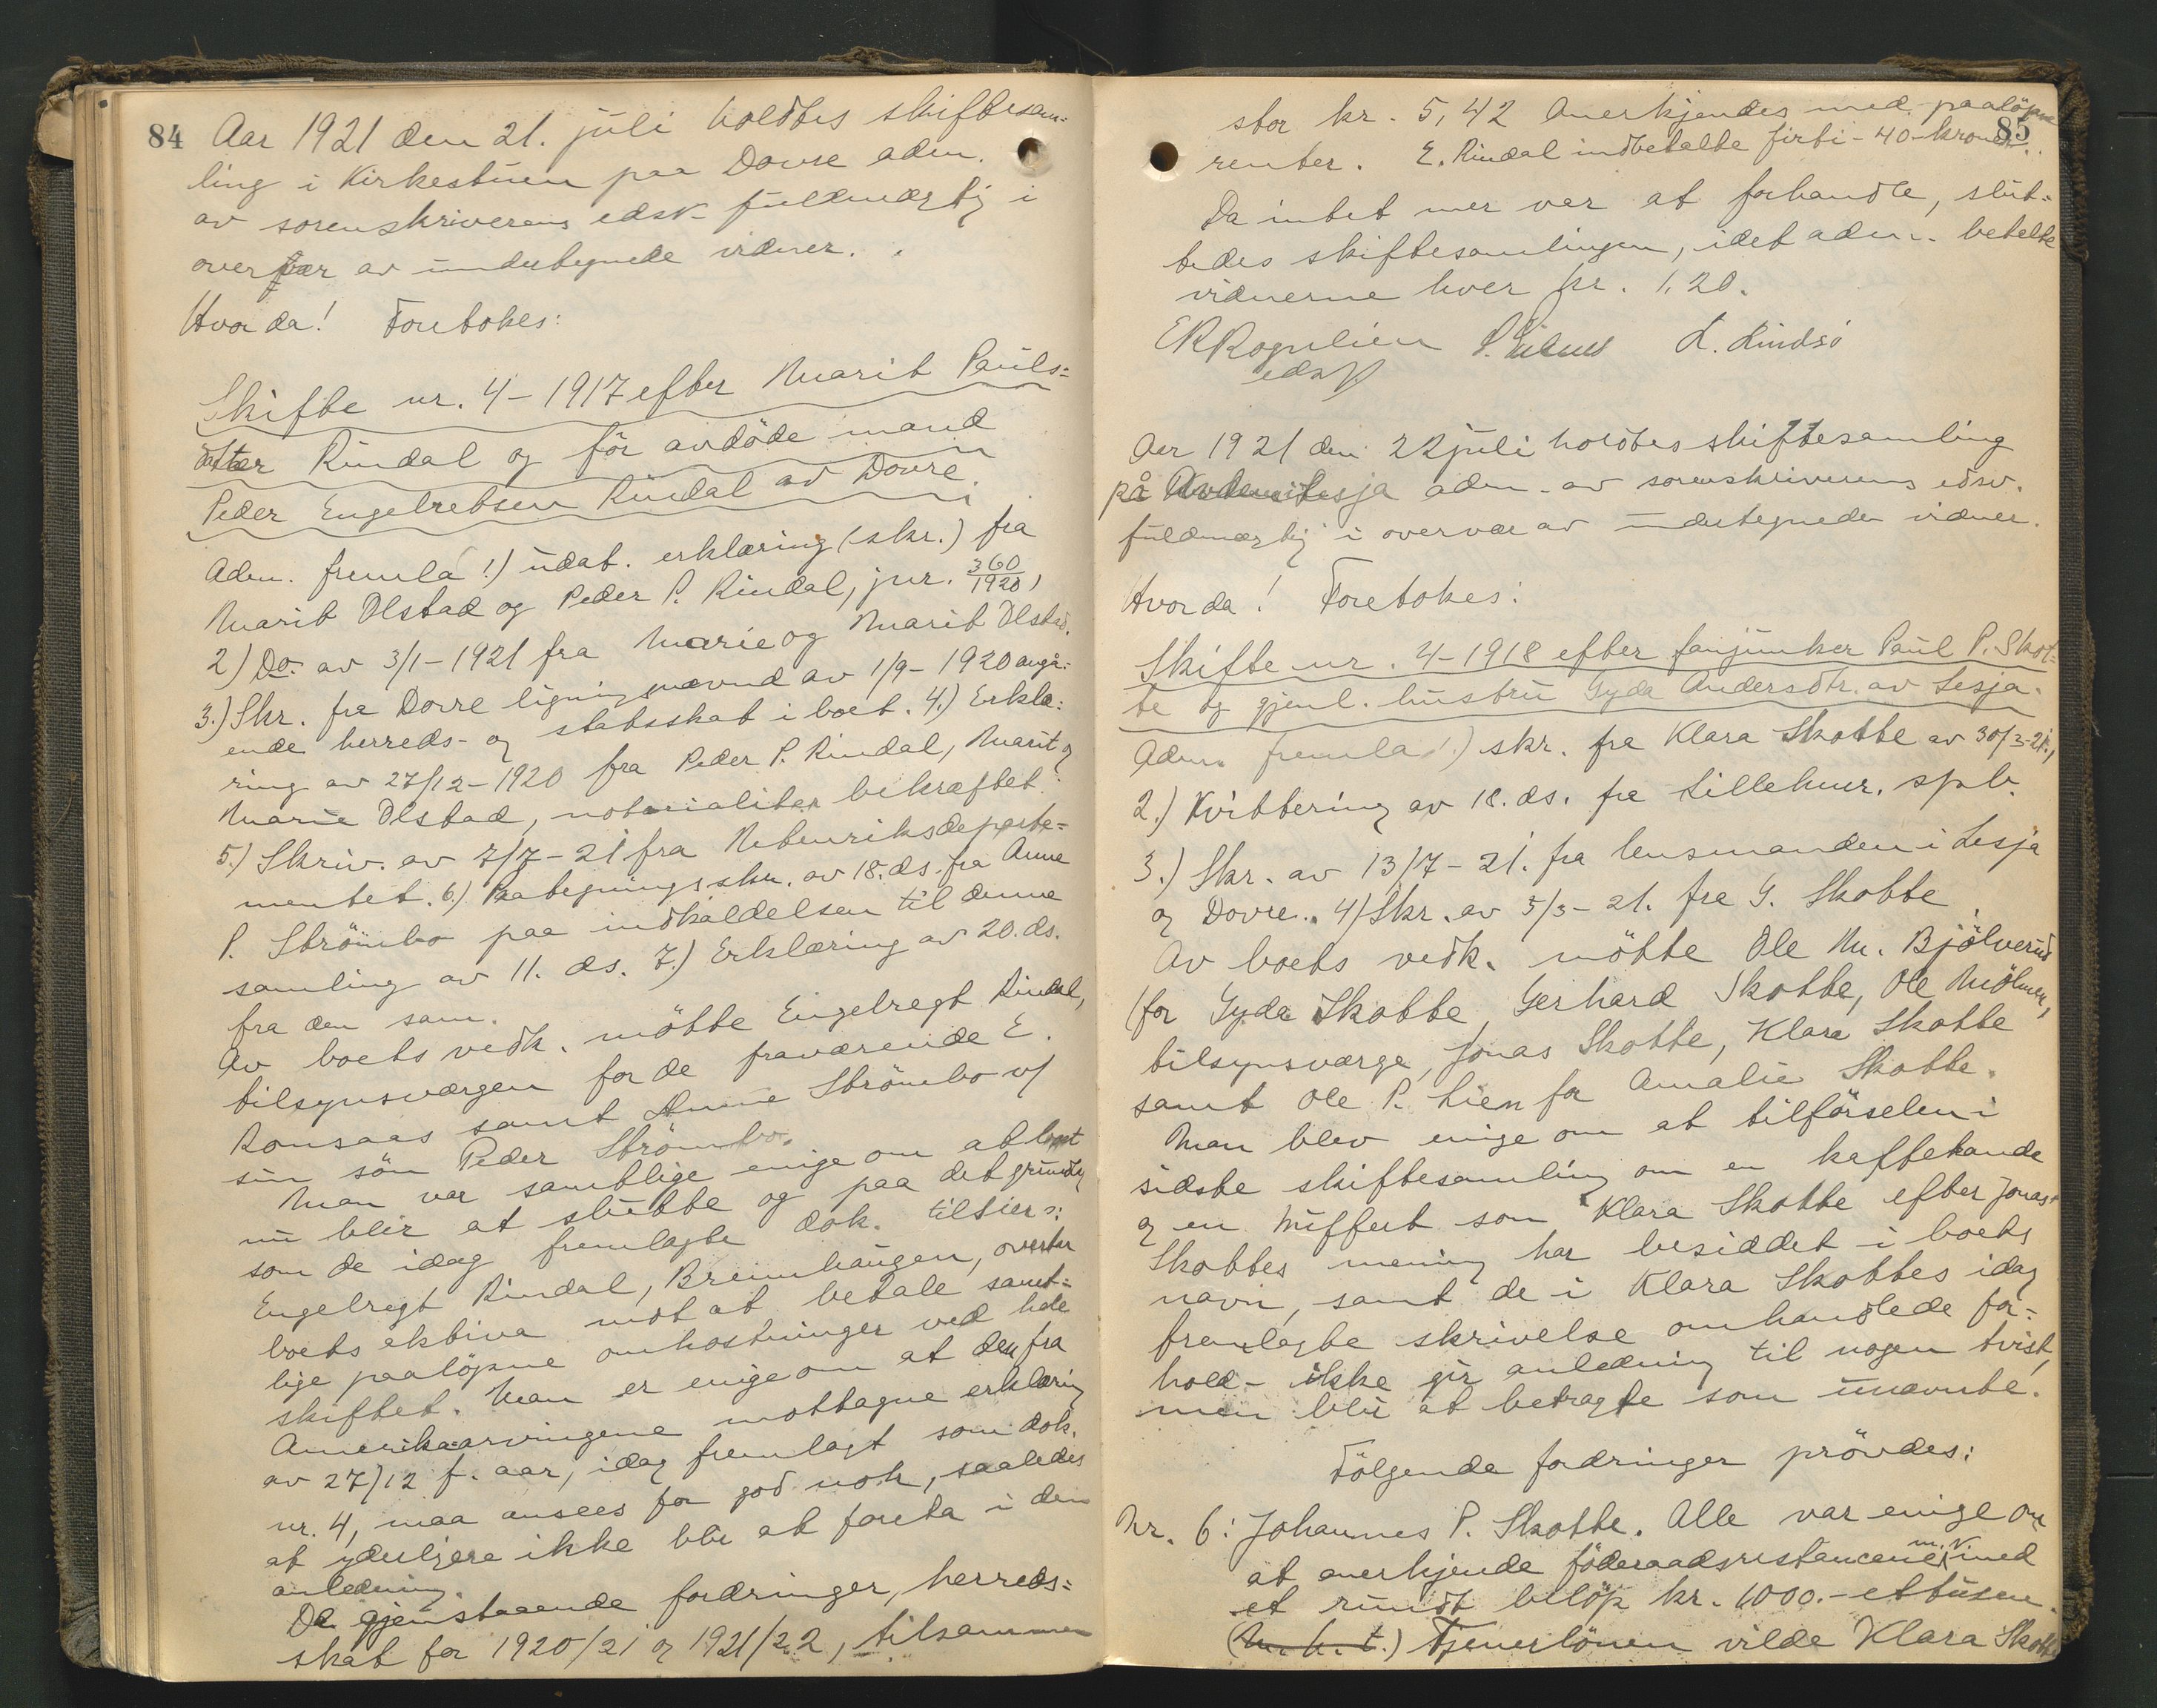 84
Aar 1921 den 21. juli holdtes skiftesam=
ling i Kirkestuen paa Dovre adm.
av sorenskriverens edsv fuldmægtig i
overvær av undertegnede vidner.
Hvorda! Foretokes:
Skifte nr. 4 - 1917 efter Marit Pauls=
datter Rindal og før avdöde mand
Peder Engebretsen Rindal av Dovre.
Adm. fremla 1.) udat. erklæring (skr.) fra
Marit Olstad og Peder P. Rindal, jnr. 360/1920,
2) Do. av 3/1 - 1921 fra Marie og Marit Olstad.
3.) Skr. fra Dovre ligningsnævnd av 1/9 - 1920 angå=
ende herreds- og statsskat i boet. 4.) Erklæ=
ring av 27/12 - 1920 fra Peder P. Rindal, Marit og
Marie Olstad, notarialiter bekræftet.
5.) Skriv. av 7/7 - 21 fra Utenriksdeparte=
mentet. 6.) Paategningsskr. av 18. ds. fra Anne
P. Strömbo paa indkaldelsen til denne
samling av 11. ds. 7.) Erklæring av 20. ds.
fra den sam.
Av boets vedk. mötte Engelregt Rindal,
tilsynsværgen for de fraværende E.
Romsaas samt Anne Strömbo v/
sin sön Peder Strömbo.
Man var samtlige enige om at boet
nu blir at slutte og paa det grundlag
som de idag fremlagte dok. tilsier:
Engelregt Rindal, Brennhaugen, overtar
boets aktiva mot at betale samt=
lige paalöpne omkostninger ved hele
skiftet. Man er enige om at den fra
Amerikaarvingene mottagne erklæring
av 27/12 f. aar, idag fremlagt som dok.
nr. 4, maa ansees for god nok, saaledes
at yderligere ikke blir at foreta i den
anledning.
De gjenstaaende fordringer, herreds=
skat for 1920/21 og 1921/22, tilsammen
85
stor kr. 5,42 anerkjendes med paalöpne
renter. E. Rindal indbetalte firti - 40 - kroner.
Da intet mer var at forhandle, slut=
tedes skiftesamlingen, idet adm. betalte
vidnerne hver kr. 1,20.
E R Rognlien L. Lindsö
edsv
Aar 1921 den 22 juli holdtes skiftesamling
på Lesja adm. av sorenskriverens edsv.
fuldmægtig i overvær av undertegnede vidner.
Hvorda! Foretokes:
Skifte nr. 4 - 1918 efter fanjunker Paul P. Skot=
te og gjenl. hustru Gyda Andersdtr. av Lesja.
Adm. fremla 1.) skr. fra Klara Skotte av 30/3 - 21.,
2.) Kvittering av 18. ds. fra Lillehmr. spb.
3.) Skr. av 13/7 - 21. fra lensmanden i Lesja
og Dovre. 4) Skr. av 5/3 - 21. fra G. Skotte.
Av boets vedk. mötte Ole M. Bjölverud
(for Gyda Skotte, Gerhard Skotte, Ole Mölmen,
tilsynsværge, Jonas Skotte, Klara Skotte
samt Ole P. Lien for Amalie Skotte.
Man blev enige om at tilförselen i
sidste skiftesamling om en kaffekande
og en muffert som Klara Skotte efter Jonas
Skottes mening har besiddet i boets
navn, samt de i Klara Skottes idag
fremlagte skrivelse omhandlede for=
hold - ikke gir anledning til nogen tvist,
men blir at betragte som unævnte.
Fölgende fordringer prövdes:
Nr. 6: Johannes P. Skotte. Alle var enige om
at anerkjende föderaadsrestancene m. v. med
et rundt belöp kr. 1000.- ettusen.
(M. h. t.) Tjenerlönen vilde Klara Skotte